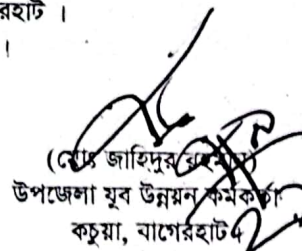 রহাট ।
।
(মোঃ জাহিদুর রহমান)
উপজেলা যুব উন্নয়ন কর্মকর্তা
কচুয়া, বাগেরহাট।